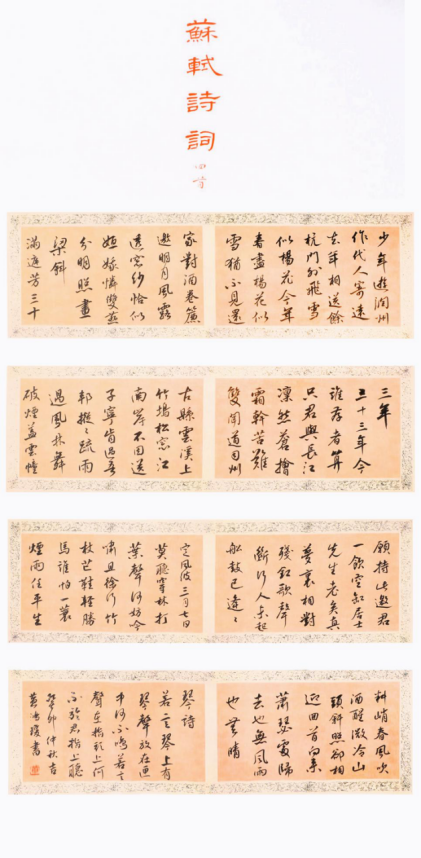 蘇軾詩詞
四首
少年遊潤州
作代人寄遠
去年相送餘
杭門外飛雪
似楊花今年
春盡楊花似
雪猶不見還
家對酒卷簾
邀明月風露
透窗紗恰似
姮娥憐雙燕
分明照畫
梁斜
滿庭芳三十
三年
三十三年今
誰存者算
只君與長江
凜然蒼檜
霜幹苦難
雙聞道司州
古縣雲溪上
竹塢松窗江
南岸不因送
子寧肯過吾
邦摐摐疏雨
過風林舞
破煙蓋雲幢
願持此邀君
一飲空缸居士
先生老矣真
夢裏相對
殘釭歌聲
斷行人未起
船鼓已逢逢
定風波三月七日
莫聽穿林打
葉聲何妨吟
嘯且徐行竹
杖芒鞋輕勝
馬誰怕一蓑
煙雨任平生
料峭春風吹
酒醒微冷山
頭斜照卻相
迎回首向來
蕭瑟處歸
去也無風雨
也無晴
琴詩
若言琴上有
琴聲放在匣
中何不鳴若言
聲在指頭上何
不於君指上聽
癸卯仲秋吉
書